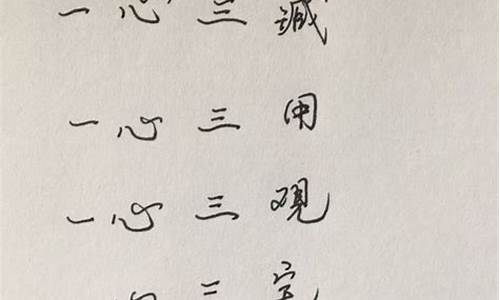 一心三諴
一心三用
一心三观
一心三定